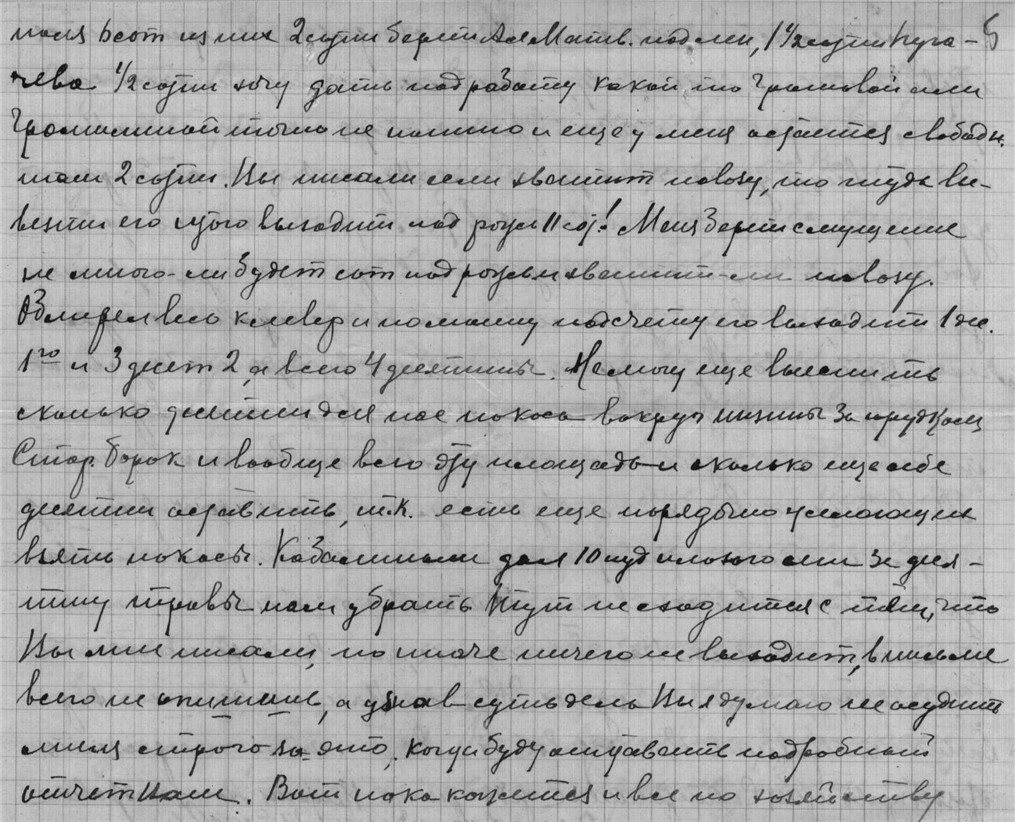 поля 6 сот из них 2 сотни берет Ал. Матв. под лен, 1 1/2 сотни Пуга- 5
чева 1/2 сотни хочу дать под работу какой то Грошовой или
точно не помню и еще у меня остается свободн.
2 сотни. Вы писали если хватит навозу, то туда вы-
везти его итого выходит под рожь 11 сот! Меня берет смущение
не много-ли будет сот под рожь и хватит-ли навозу.
Обмерел весь клевер и по моему подсчету его выходит 1 де.
1го и 3 десят 2, а всего 4 десятины. Не могу еще выяснить
сколько десятин для нас покоса вокруг низины за
Стар. борок и вообще всю эту площадь и сколько еще себе
десятин оставить, т.к. есть еще порядочно желающих
взять покосы. дал 10 пуд за деся-
тину травы нам убрать тут не сходится с тем, что
Вы мне писали, но иначе ничего не выходит, в письме
всего не опишешь, а узнав суть дела Вы я думаю не осудите
меня строго за это, когда буду составлять подробный
отчет Вам. Вот пока кажется и все по хозяйству